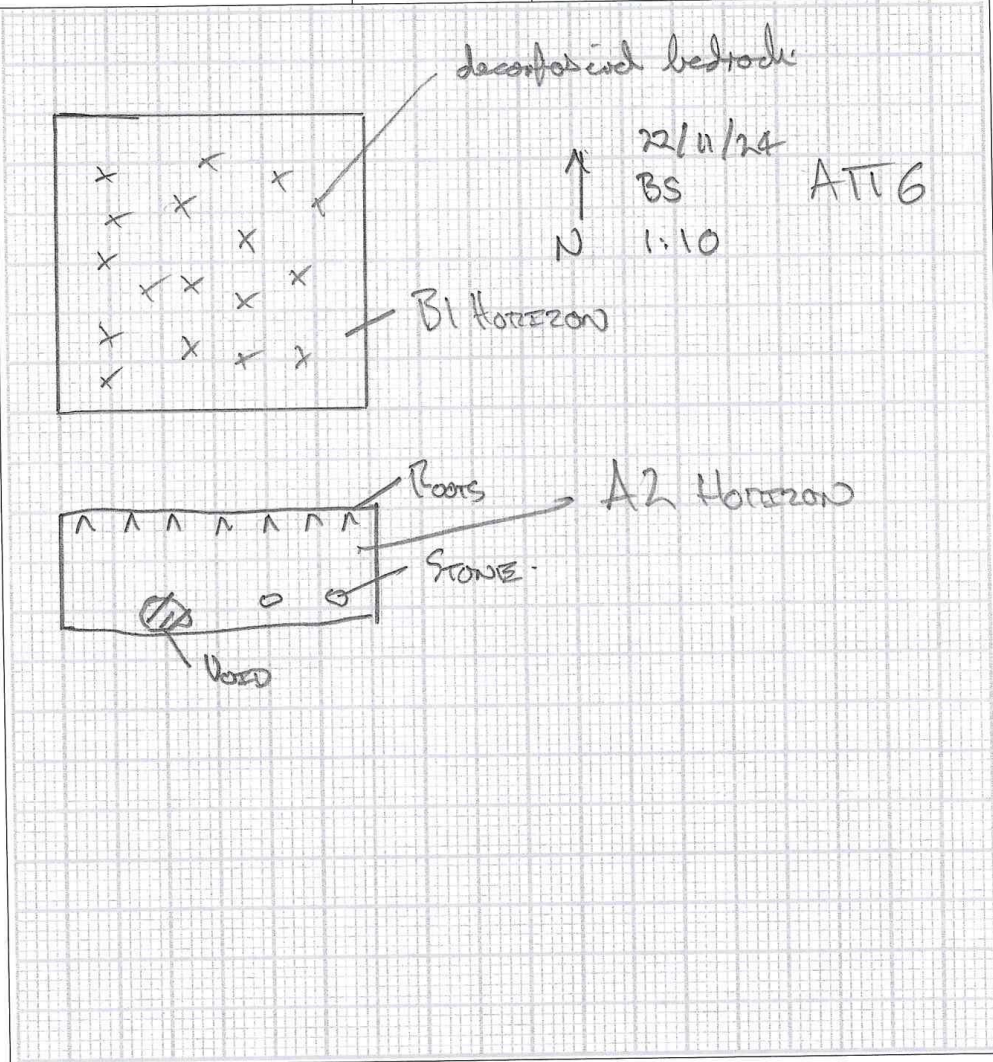 decomposed bedrock
22/11/24
BS
ATT6
N 1:10
B1 HORIZON
ROOTS
A2 HORIZON
STONE.
VOID